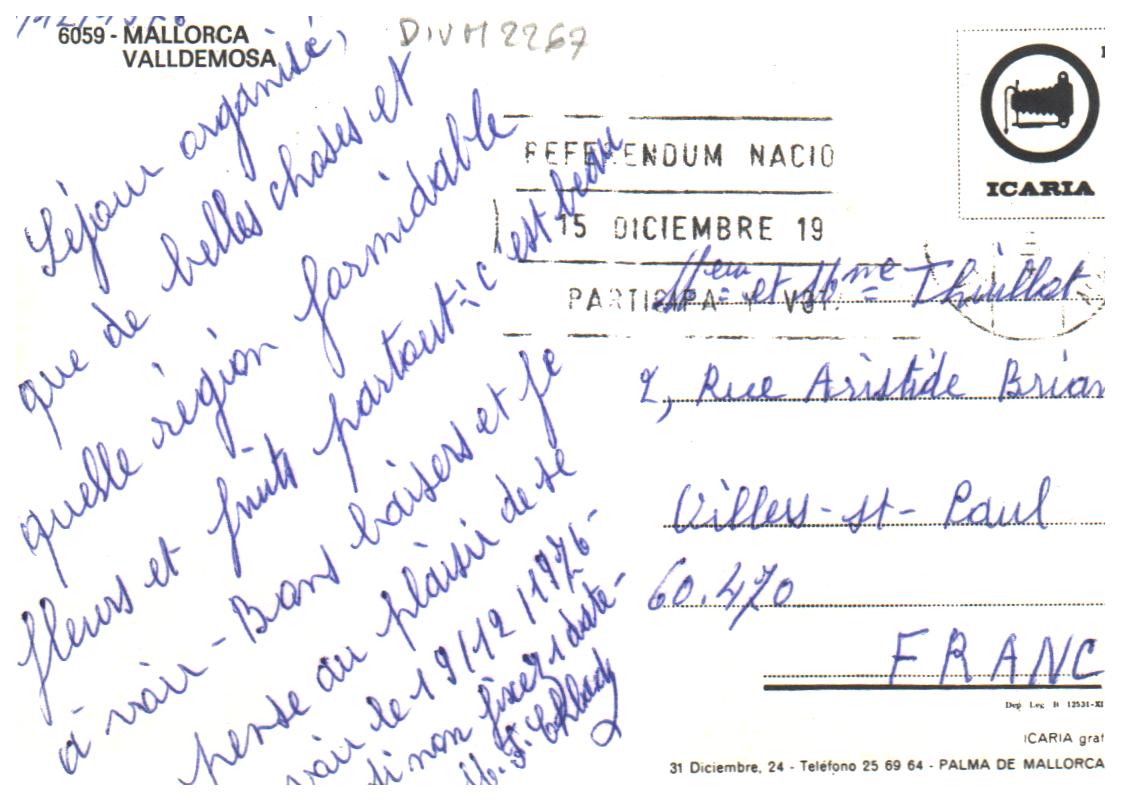 6059 - MALLORCA
VALLDEMOSA
DIVM2267
Séjour organisé,
que de belles choses et
quelle région formidable
fleurs et fruits partout : c'est beau
à voir - Bons baisers et je
pense au plaisir de se
voir le 19/12/1976 -
Si non fixez 1 date -
REFERENDUM NACIO
15 DICIEMBRE 19
PARTICIPA Y VOT
ICARIA
Meur et Mme Thuillot
2, Rue Aristide Brian
Villers - st - Paul
60.470
FRANC
Dep. Leg. B 12531-XI
ICARIA graf
31 Diciembre, 24 - Teléfono 25 69 64 - PALMA DE MALLORCA